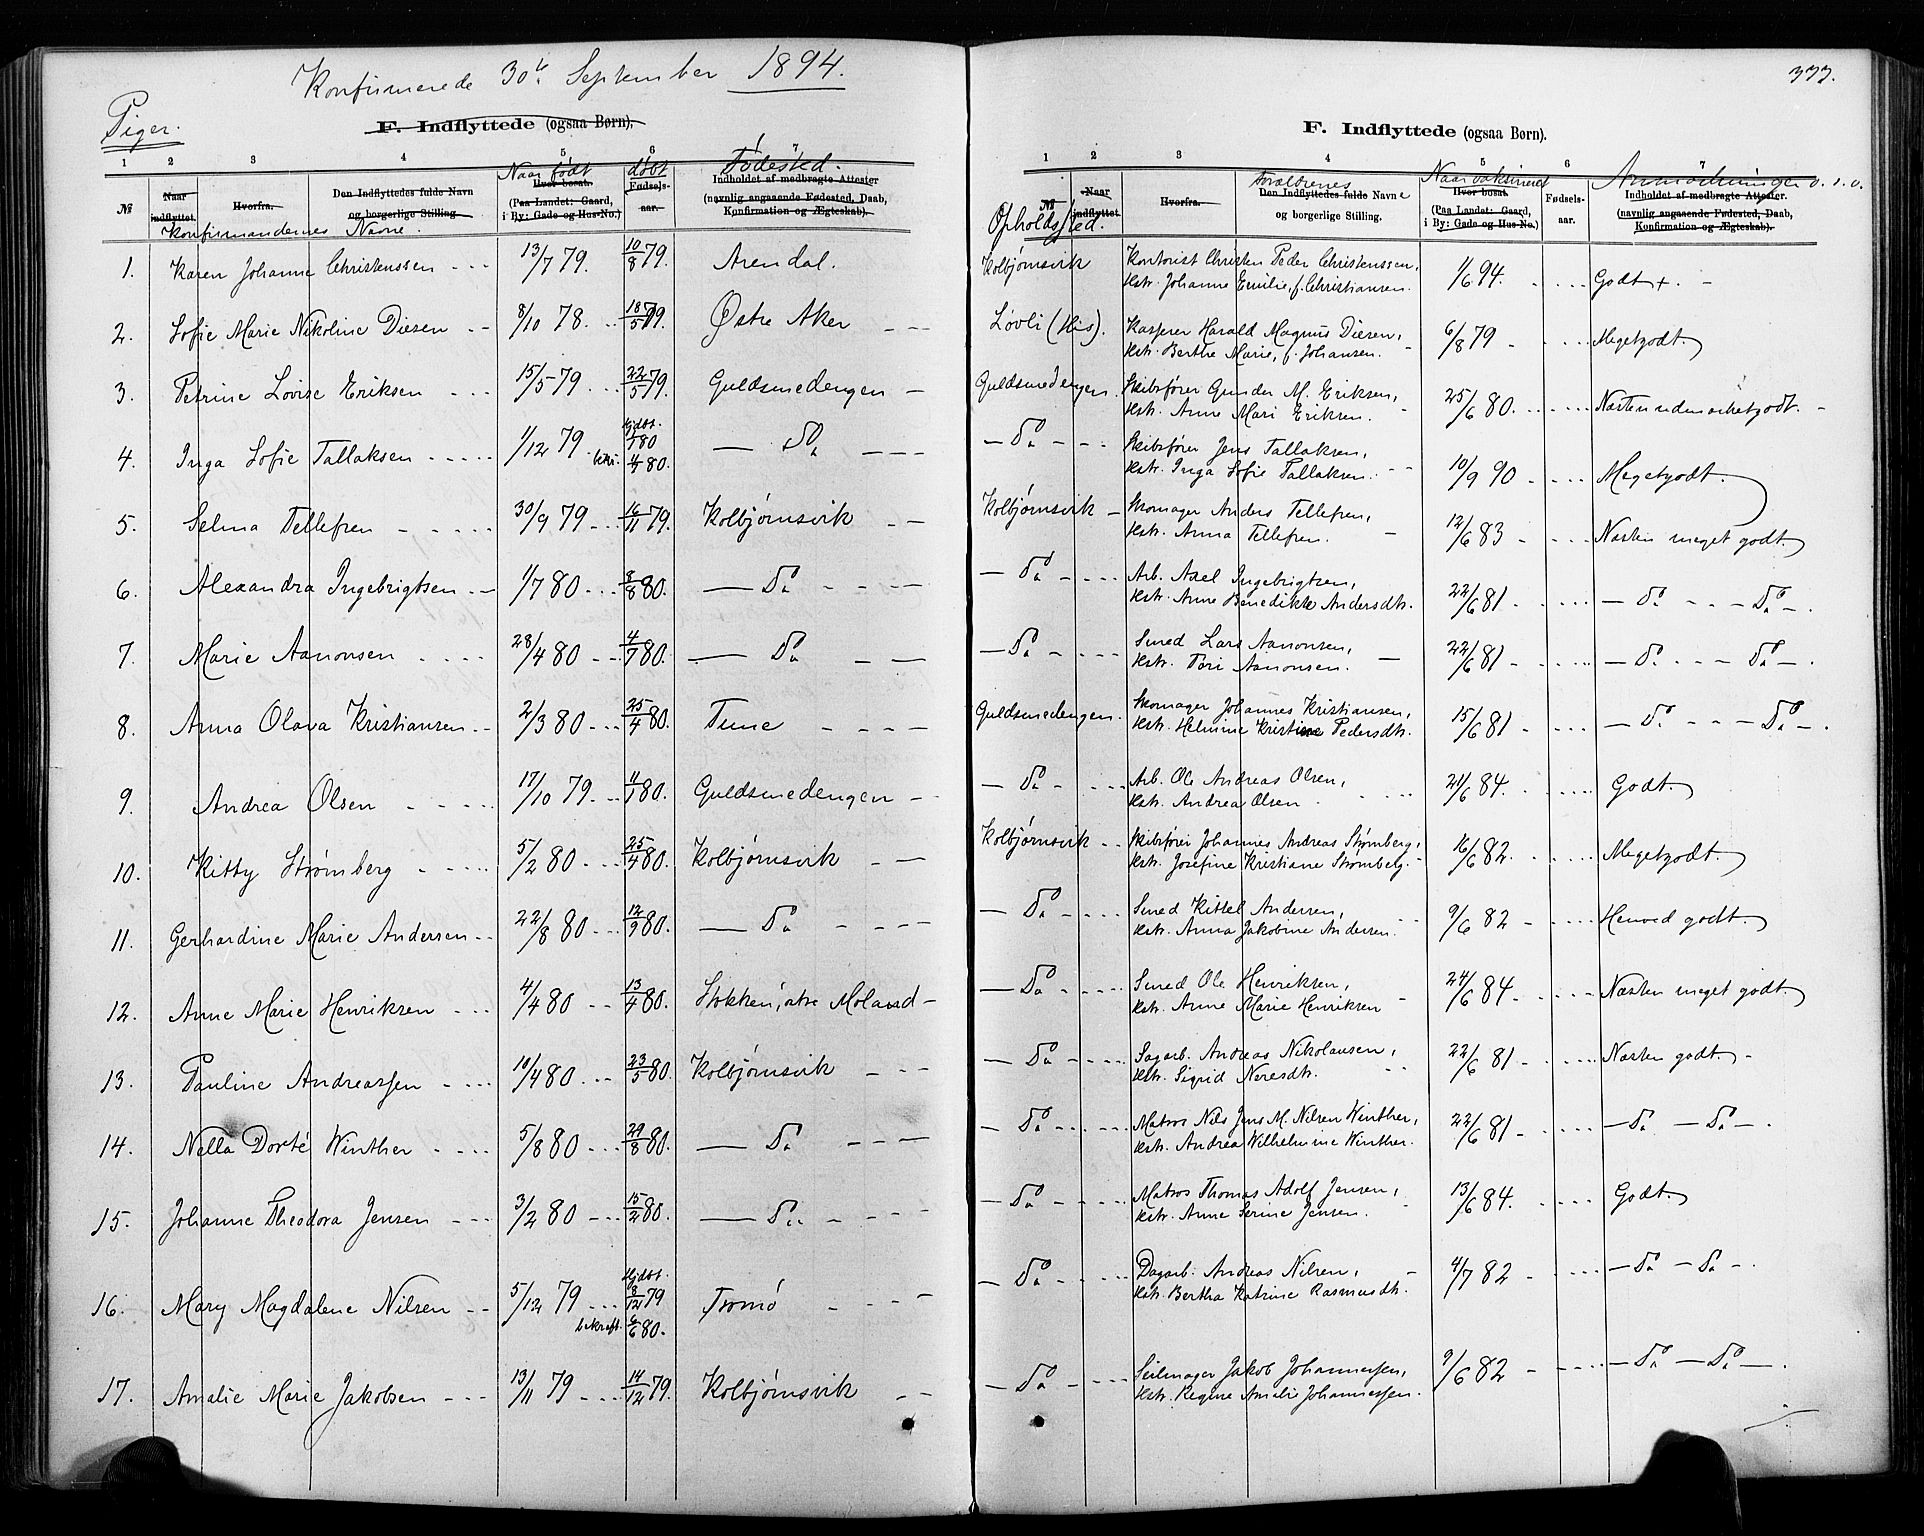 Konfirmerede 30te September 1894.
Piger.
F. Indflyttede (ogsaa Børn).
1 2 3 4 5 6 7
Naar født døbt Fødested.
№ Naar indflyttet. Hvorfra. Den Indflyttedes fulde Navn og borgerlige Stilling. Hvor bosat. (Paa Landet: Gaard, i By: Gade og Hus-No.) Fødsels-aar. Indholdet af medbragte Attester (navnlig angaaende Fødested, Daab, Konfirmation og Ægteskab).
Konfirmandernes Navne.
1. Karen Johanne Christenssen 13/7 79. 10/8 79. Arendal.
2. Sofie Marie Nikoline Diesen 8/10 78. 18/5 79. Østre Aker
3. Petrine Lovise Eriksen 15/5 79 22/5 79. Guldsmedengen
4. Inga Sofie Tallaksen 1/12 79. Hjdbt. 2/1 80 kri. 4/5 80. — Do
5. Selma Tellefsen 30/9 79 16/11 79. Kolbjørnsvik
6. Alexandra Ingebrigtsen 1/7 80 8/8 80. — Do
7. Marie Aanonsen 28/4 80 4/7 80. — Do
8. Anna Olava Kristiansen 2/3 80 25/4 80. Tune
9. Andrea Olsen 17/10 79. 11/1 80. Guldsmedengen
10. Kitty Strømberg 5/2 80 25/4 80. Kolbjørnsvik
11. Gerhardine Marie Andersen 22/8 80 12/9 80. — Do
12. Anne Marie Henriksen 4/4 80 13/4 80. Stokken, østre Moland
13. Pauline Andreassen 10/4 80 23/5 80. Kolbjørnsvik
14. Nella Dorté Winther 5/8 80 29/8 80. — Do
15. Johanne Theodora Jensen 3/2 80 15/2 80. — Do
16. Mary Magdalene Nilsen 5/12 79 Hjdbt. 8/12 79 bekræft. 6/6 80. Tromø
17. Amalie Marie Jakobsen 13/11 79 14/12 79. Kolbjørnsvik
333.
F. Indflyttede (ogsaa Børn).
1 2 3 4 5 6 7
Forældrenes Naar vaksineret Anmærkninger o. s. v.
№ Naar indflyttet. Hvorfra. Den Indflyttedes fulde Navne og borgerlige Stilling. Hvor bosat. (Paa Landet: Gaard, i By: Gade og Hus-No.) Fødsels-aar. Indholdet af medbragte Attester. (navnlig angaaende Fødested, Daab, Konfirmation og Ægteskab).
Opholdssted.
Kolbjørnsvik Kontorist Christen Peder Christenssen,
Hstr. Johanne Emilie, f. Christiansen. 1/6 94. Godt +.
Løvli (His). Kasserer Harald Magnus Diesen,
Hstr. Berthe Marie, f. Johansen. 6/8 79 Megetgodt.
Guldsmedengen. Skibsfører Gunder M. Eriksen,
Hstr. Anne Mari Eriksen. 25/6 80. Næsten udmærketgodt.
— Do Skibsfører Jens Tallaksen,
Hstr. Inga Sofie Tallaksen. 10/9 90 Megetgodt.
Kolbjørnsvik Skomager Anders Tellefsen,
Hstr. Anna Tellefsen. 12/6 83 Næsten meget godt.
— Do Arb. Axel Ingebrigtsen,
Hstr. Anne Benedikte Andersdtr. 22/6 81 — Do — Do
— Do Smed Lars Aanonsen,
Hstr. Tori Aanonsen. 22/6 81 — Do — Do
Guldsmedengen. Skomager Johannes Kristiansen,
Hstr. Helmine Kristine Pedersdtr. 15/6 81 — Do — Do
— Do Arb. Ole Andreas Olsen,
Hstr. Andrea Olsen. 21/6 84. Godt.
Kolbjørnsvik Skibsfører Johannes Andreas Strømberg,
Hstr. Josefine Kristiane Strømberg. 16/6 82. Megetgodt.
— Do Smed Kittel Andersen,
Hstr. Anna Jakobine Andersen. 9/6 82 Henved godt.
— Do Smed Ole Henriksen,
Hstr. Anne Marie Henriksen 24/6 84 Næsten meget godt.
— Do Sagarb. Andreas Nikolausen,
Hstr. Sigrid Neresdtr. 22/6 81 Næsten godt.
— Do Matros Nils Jens M. Nilsen Winther,
Hstr. Andrea Wilhelmine Winther. 22/6 81 — Do — Do
— Do Matros Thomas Adolf Jensen,
Hstr. Anne Serine Jensen. 13/6 84. Godt.
— Do Dagarb. Andreas Nilsen,
Hstr. Bertha Katrine Rasmusdtr. 4/7 82 — Do — Do
— Do Seilmager Jakob Johannessen,
Hstr. Regine Amalie Johannessen. 9/6 82 — Do — Do